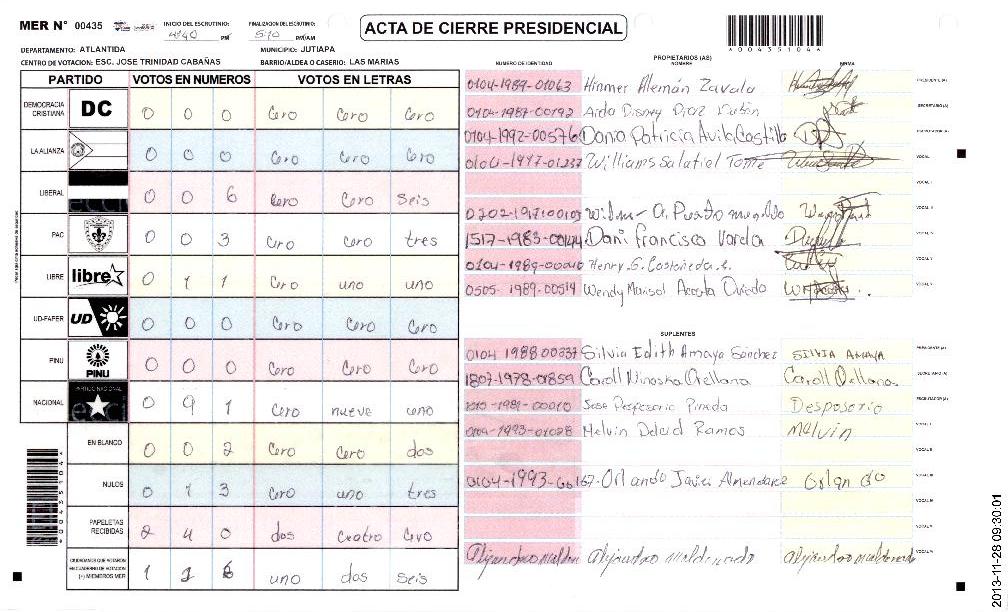 MER N° 00435
INICIO DEL ESCRUTINIO: 4:40 PM
FINALIZACION DEL ESCRUTINIO: 5:10 PM/AM
ACTA DE CIERRE PRESIDENCIAL
00435104
DEPARTAMENTO: ATLANTIDA
MUNICIPIO: JUTIAPA
CENTRO DE VOTACION: ESC. JOSE TRINIDAD CABAÑAS
BARRIO/ALDEA O CASERIO: LAS MARIAS
PARTIDO VOTOS EN NUMEROS VOTOS EN LETRAS
DEMOCRACIA CRISTIANA DC 0 0 0 Cero Cero Cero
LA ALIANZA 0 0 0 Cero Cero Cero
LIBERAL 0 0 6 Cero Cero Seis
PAC 0 0 3 Cero Cero tres
LIBRE libre 0 1 1 Cero uno uno
UD-FAPER UD 0 0 0 Cero Cero Cero
PINU PINU 0 0 0 Cero Cero Cero
NACIONAL PARTIDO NACIONAL 0 9 1 Cero nueve uno
EN BLANCO 0 0 2 Cero Cero dos
NULOS 0 1 3 Cero uno tres
PAPELETAS RECIBIDAS 2 4 0 dos cuatro Cero
CIUDADANOS QUE VOTARON EN CUADERNO DE VOTACION (+) MIEMBROS MER 1 2 6 uno dos seis
PROPIETARIOS (AS)
NUMERO DE IDENTIDAD NOMBRE FIRMA
0104-1989-01063 Hinmer Alemán Zavala PRESIDENTE (A)
0104-1987-00192 SECRETARIO (A)
0104-1992-00576 Dania Patricia Avila Castillo ESCRUTADOR (A)
0104-1997-01237 Williams Salatiel VOCAL I
VOCAL II
VOCAL III
1517-1983-00144 Dani Francisco Varela VOCAL IV
0104-1989-00040 Henry S. Castañeda VOCAL V
0505-1989-00514 Wendy Marisol Acosta Oviedo VOCAL VI
SUPLENTES
0104 1988 00337 Silvia Edith Amaya Sanchez SILVIA AMAYA PRESIDENTE (A)
1807-1978-01859 Caroll Ninoska Orellana Caroll Orellana SECRETARIO (A)
Jose Desposorio Pineda Desposorio ESCRUTADOR (A)
0104-1993-01028 Melvin Ramos Melvin VOCAL I
VOCAL II
0104-1993- Orlando Javier Almendarez Orlando VOCAL III
VOCAL IV
VOCAL V
Alejandro Maldonado Alejandro Maldonado VOCAL VI
2013-11-28 09:30:01